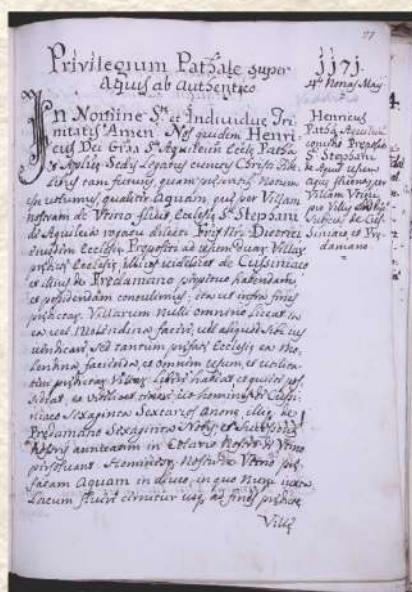 Privilegium Path:ale super
Aquis ab Authentico
In Nomine S:tę et Individuę Tri-
nitatis Amen. Nos quidem Henri-
cus Dei Gra S:tę Aquileien: Eccłę Patha
et Aplicę Sedis Legatus cunctis Christi fide-
libus tam futuris, quam pręsentibus Notum
esse volumus, qualiter Aquam, quę per Villam
nostram de Utino fluit, Ecclesię S:ti Stephani
de Aquileia rogatu dilecti Fris Nri Dietrici
eiusdem Ecclesię Prępositi ad usum duar. Villar.
prędictę Ecclesię, illius videlicet de Cussiniaco
et illius de Predamano perpetuo habendam,
et possidendam concedimus; ita ut infra fines
prędictar. Villarum nulli omnino liceat in
ea vel Molendina facere, vel aliquod sibi ius
vendicare, sed tantum prefata Ecclesia ea Mo-
lendina facienda, et omnem usum, et utilita-
tem prędictar. Villar. liberè habeat, et quietè pos-
sideat, eo
homines de Cussi-
niaco Sexaginta Sextarios Anonę, illi de
Predamano Sexaginta Nobis, et Successoribus
Nostris annuatim in Celario Nostro de Utino
persolvant. Homines Nostri de Utino prę-
fatam Aquam in alveo, in quo nunc iuxta
Lacum fluere cernitur usq. ad fines prędictę
Villę
1171.
4to Nonas Maij
Henricus
Patha Aquileien:
concedit Preposito
S: Stephani
de Aquil: usum
aquę fluentis per
Villam Utini
pro Villis
Subtus de Cus-
siniaco, et Pre-
damano